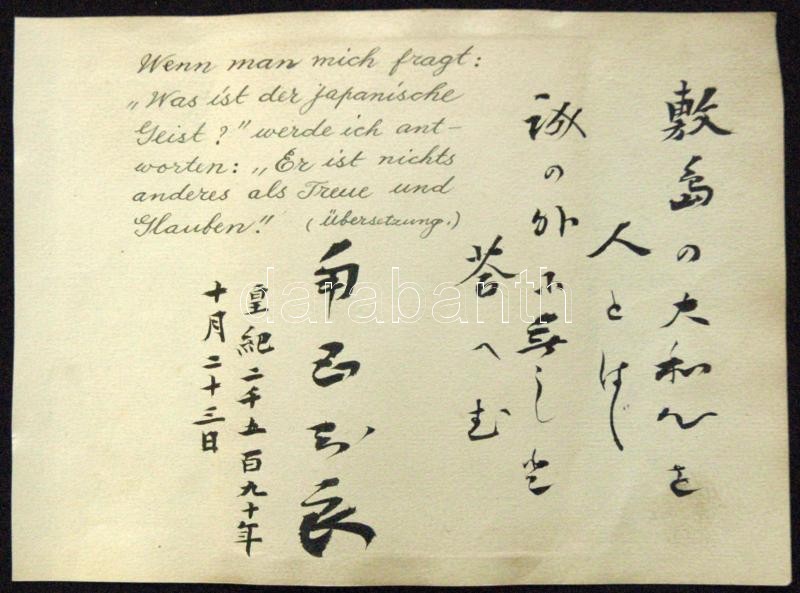 Wenn man mich fragt:
„Was ist der japanische
Geist?" werde ich ant-
worten: „Er ist nichts
anderes als Treue und
Glauben." (Übersetzung.)
敷島の大和心を
人とはゞ
誠の外に無しと
答へむ
皇紀二千五百九十年
十月二十三日
darabanth